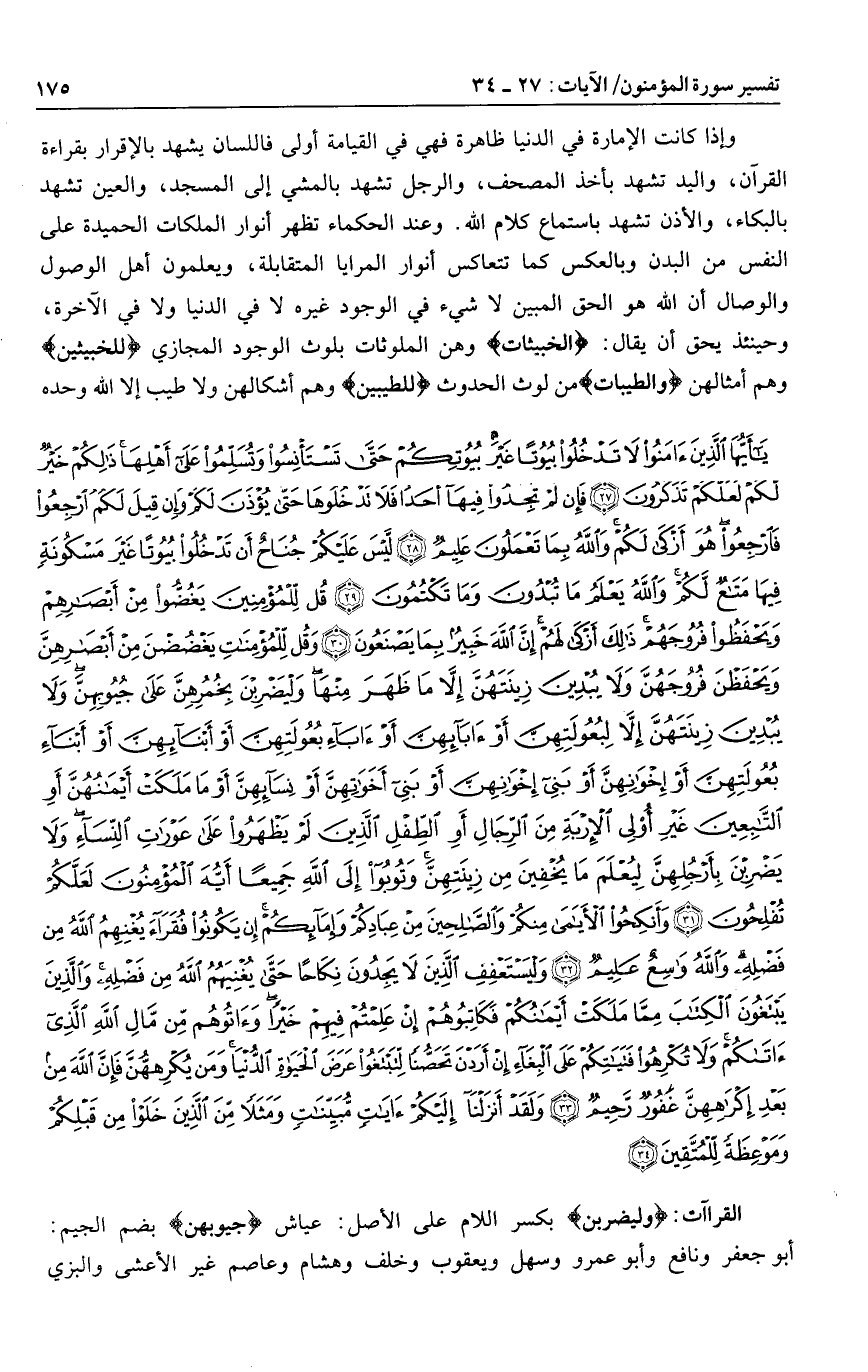 تفسير سورة المؤمنون/ الآيات: ٢٧ ـ ٣٤ ١٧٥
وإذا كانت الإمارة في الدنيا ظاهرة فهي في القيامة أولى فاللسان يشهد بالإقرار بقراءة
القرآن، واليد تشهد بأخذ المصحف، والرجل تشهد بالمشي إلى المسجد، والعين تشهد
بالبكاء، والأذن تشهد باستماع كلام الله. وعند الحكماء تظهر أنوار الملكات الحميدة على
النفس من البدن وبالعكس كما تتعاكس أنوار المرايا المتقابلة، ويعلمون أهل الوصول
والوصال أن الله هو الحق المبين لا شيء في الوجود غيره لا في الدنيا ولا في الآخرة،
وحينئذ يحق أن يقال: ﴿الخبيثات﴾ وهن الملوثات بلوث الوجود المجازي ﴿للخبيثين﴾
وهم أمثالهن ﴿والطيبات﴾من لوث الحدوث ﴿للطيبين﴾ وهم أشكالهن ولا طيب إلا الله وحده
يَٰٓأَيُّهَا ٱلَّذِينَ ءَامَنُوا۟ لَا تَدْخُلُوا۟ بُيُوتًا غَيْرَ بُيُوتِكُمْ حَتَّىٰ تَسْتَأْنِسُوا۟ وَتُسَلِّمُوا۟ عَلَىٰٓ أَهْلِهَا ۚ ذَٰلِكُمْ خَيْرٌ
لَّكُمْ لَعَلَّكُمْ تَذَكَّرُونَ ٢٧ فَإِن لَّمْ تَجِدُوا۟ فِيهَآ أَحَدًا فَلَا تَدْخُلُوهَا حَتَّىٰ يُؤْذَنَ لَكُمْ ۖ وَإِن قِيلَ لَكُمُ ٱرْجِعُوا۟
فَٱرْجِعُوا۟ ۖ هُوَ أَزْكَىٰ لَكُمْ ۚ وَٱللَّهُ بِمَا تَعْمَلُونَ عَلِيمٌ ٢٨ لَّيْسَ عَلَيْكُمْ جُنَاحٌ أَن تَدْخُلُوا۟ بُيُوتًا غَيْرَ مَسْكُونَةٍ
فِيهَا مَتَٰعٌ لَّكُمْ ۚ وَٱللَّهُ يَعْلَمُ مَا تُبْدُونَ وَمَا تَكْتُمُونَ ٢٩ قُل لِّلْمُؤْمِنِينَ يَغُضُّوا۟ مِنْ أَبْصَٰرِهِمْ
وَيَحْفَظُوا۟ فُرُوجَهُمْ ۚ ذَٰلِكَ أَزْكَىٰ لَهُمْ ۗ إِنَّ ٱللَّهَ خَبِيرٌۢ بِمَا يَصْنَعُونَ ٣٠ وَقُل لِّلْمُؤْمِنَٰتِ يَغْضُضْنَ مِنْ أَبْصَٰرِهِنَّ
وَيَحْفَظْنَ فُرُوجَهُنَّ وَلَا يُبْدِينَ زِينَتَهُنَّ إِلَّا مَا ظَهَرَ مِنْهَا ۖ وَلْيَضْرِبْنَ بِخُمُرِهِنَّ عَلَىٰ جُيُوبِهِنَّ ۖ وَلَا
يُبْدِينَ زِينَتَهُنَّ إِلَّا لِبُعُولَتِهِنَّ أَوْ ءَابَآئِهِنَّ أَوْ ءَابَآءِ بُعُولَتِهِنَّ أَوْ أَبْنَآئِهِنَّ أَوْ أَبْنَآءِ
بُعُولَتِهِنَّ أَوْ إِخْوَٰنِهِنَّ أَوْ بَنِىٓ إِخْوَٰنِهِنَّ أَوْ بَنِىٓ أَخَوَٰتِهِنَّ أَوْ نِسَآئِهِنَّ أَوْ مَا مَلَكَتْ أَيْمَٰنُهُنَّ أَوِ
ٱلتَّٰبِعِينَ غَيْرِ أُو۟لِى ٱلْإِرْبَةِ مِنَ ٱلرِّجَالِ أَوِ ٱلطِّفْلِ ٱلَّذِينَ لَمْ يَظْهَرُوا۟ عَلَىٰ عَوْرَٰتِ ٱلنِّسَآءِ ۖ وَلَا
يَضْرِبْنَ بِأَرْجُلِهِنَّ لِيُعْلَمَ مَا يُخْفِينَ مِن زِينَتِهِنَّ ۚ وَتُوبُوٓا۟ إِلَى ٱللَّهِ جَمِيعًا أَيُّهَ ٱلْمُؤْمِنُونَ لَعَلَّكُمْ
تُفْلِحُونَ ٣١ وَأَنكِحُوا۟ ٱلْأَيَٰمَىٰ مِنكُمْ وَٱلصَّٰلِحِينَ مِنْ عِبَادِكُمْ وَإِمَآئِكُمْ ۚ إِن يَكُونُوا۟ فُقَرَآءَ يُغْنِهِمُ ٱللَّهُ مِن
فَضْلِهِۦ ۗ وَٱللَّهُ وَٰسِعٌ عَلِيمٌ ٣٢ وَلْيَسْتَعْفِفِ ٱلَّذِينَ لَا يَجِدُونَ نِكَاحًا حَتَّىٰ يُغْنِيَهُمُ ٱللَّهُ مِن فَضْلِهِۦ ۗ وَٱلَّذِينَ
يَبْتَغُونَ ٱلْكِتَٰبَ مِمَّا مَلَكَتْ أَيْمَٰنُكُمْ فَكَاتِبُوهُمْ إِنْ عَلِمْتُمْ فِيهِمْ خَيْرًا ۖ وَءَاتُوهُم مِّن مَّالِ ٱللَّهِ ٱلَّذِىٓ
ءَاتَىٰكُمْ ۚ وَلَا تُكْرِهُوا۟ فَتَيَٰتِكُمْ عَلَى ٱلْبِغَآءِ إِنْ أَرَدْنَ تَحَصُّنًا لِّتَبْتَغُوا۟ عَرَضَ ٱلْحَيَوٰةِ ٱلدُّنْيَا ۚ وَمَن يُكْرِههُّنَّ فَإِنَّ ٱللَّهَ مِنۢ
بَعْدِ إِكْرَٰهِهِنَّ غَفُورٌ رَّحِيمٌ ٣٣ وَلَقَدْ أَنزَلْنَآ إِلَيْكُمْ ءَايَٰتٍ مُّبَيِّنَٰتٍ وَمَثَلًا مِّنَ ٱلَّذِينَ خَلَوْا۟ مِن قَبْلِكُمْ
وَمَوْعِظَةً لِّلْمُتَّقِينَ ٣٤
القراآت: ﴿وليضربن﴾ بكسر اللام على الأصل: عياش ﴿جيوبهن﴾ بضم الجيم:
أبو جعفر ونافع وأبو عمرو وسهل ويعقوب وخلف وهشام وعاصم غير الأعشى والبزي